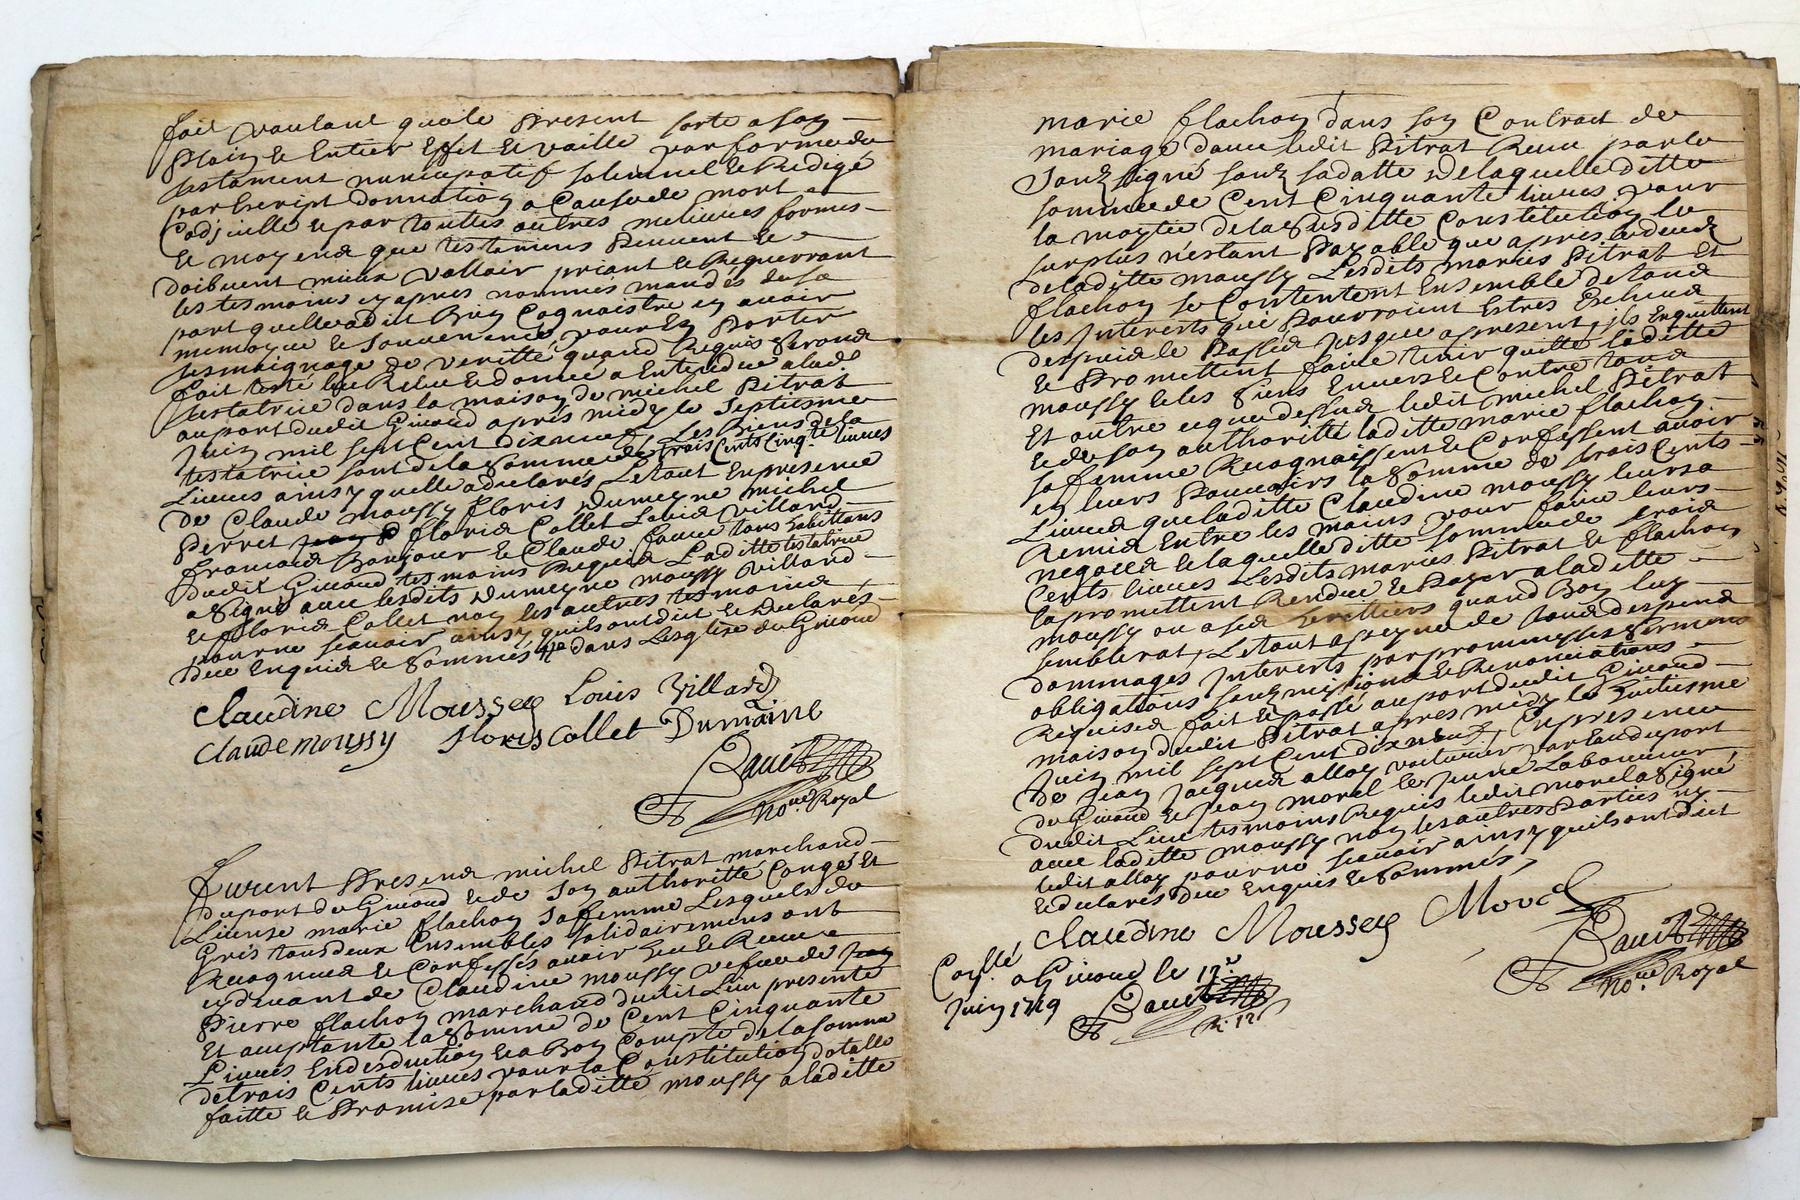 fait voulant quile present sorte a son
plain & Entier Effet & vaille par forme de
testament nuncupatif solemnel & Redigé
par Escript donnation a Cause de mort
Codicille & par touttes autres melieures formes
& moyens que testamens peuvent &
doibvent mieux valloir priant & Requerrant
les tesmoins cy apres nommés mandés de sa
part quelle a dit bien Cognoistre en avoir
memoyre & souvenence, pour En porter
tesmoignage de veritté quand Requis seront
fait testé leu Releu & donné a Entendre a lad.
testatrice dans la maison de michel Pitrat
au port dudit Givord après midy le septiesme
Juin mil sept Cent dixneuf, Les biens de la
testatrice sont de la somme de trois Cents Cinqte livres
Livres ainsy quelle a declarés Le tout En presence
de Claude moussy floris Dumeyne michel
Perret floris Collet Louis villard
francois Bonjour & Claude faure tous habittans
dudit Givord tesmoins Requis Laditte testatrice
a signé avec lesdits Dumeyne moussy villard
& floris Collet non les autres tesmoins
pour ne scavoir ainsy quils ont dit & declarés
deue Enquis & sommés dans Lesglise de Givord
Claudine Moussey Louis Villard
Claude moussy floris Collet Dumaine
no.re Royal
furent presens michel Pitrat marchand
du port de Givord & de son authoritté Congés Et
License marie flachon sa femme Lesquels de
Gris tous deux Ensembles solidairement ont
Recognus & Confessés avoir Eu & Receu
cy devant de Claudine moussy vefve de
Pierre flachon marchand dudit Lieu presente
Et acceptante la somme de Cent Cinquante
Livres En desduction & a bon Compte de la somme
de trois Cents livres pour la Constitution dotalle
faitte & promise par laditte moussy a laditte
marie flachon dans son Contract de
mariage avec ledit Pitrat Receu par le
soubsigné soubs sa datte de laquelle ditte
somme de Cent Cinquante livres pour
la moytié de la susditte Constitution le
surplus nestant payable que apres le deced
de laditte moussy Lesdits mariés Pitrat Et
flachon se Contentent Ensemble de tous
les Interests qui pourroient Estres Escheus
despuis le passés Jusque a present, ils En quittent
& promettent faire tenir quitte laditte
moussy & les siens Envers & Contre tous
Et outre ce que dessus ledit michel Pitrat
& de son authoritté laditte marie flachon
sa femme Recognoissent & Confessent avoir
en leurs pouvoirs la somme de trois Cents
Livres que laditte Claudine moussy leurs a
Remis Entre les mains pour faire leurs
negoces & laquelle ditte somme de trois
Cents livres Lesdits mariés Pitrat & flachon
la promettent Rendre & payer a laditte
moussy ou a ses herittiers quand bon luy
semblerat, Le tout a peyne de tous despens
dommages Interests par promesses sermens
obligations soubmissions & Renonciations
Requises fait & passé au port dudit Givord
maison dudit Pitrat apres midy le huitiesme
Juin mil sept Cent dixneuf, En presence
de Jean Jacques alloy voiturier par Eau du port
de Givord & Jean morel le Jeune Laboureur
dudit Lieu tesmoins Requis ledit morel a signé
avec laditte moussy non les autres parties ny
ledit alloy pour ne scavoir ainsy quils ont dict
& declarés deue Enquis & sommés,
Claudine Moussey Morel
no.re Royal
a Givord le 12e
Juin 1719